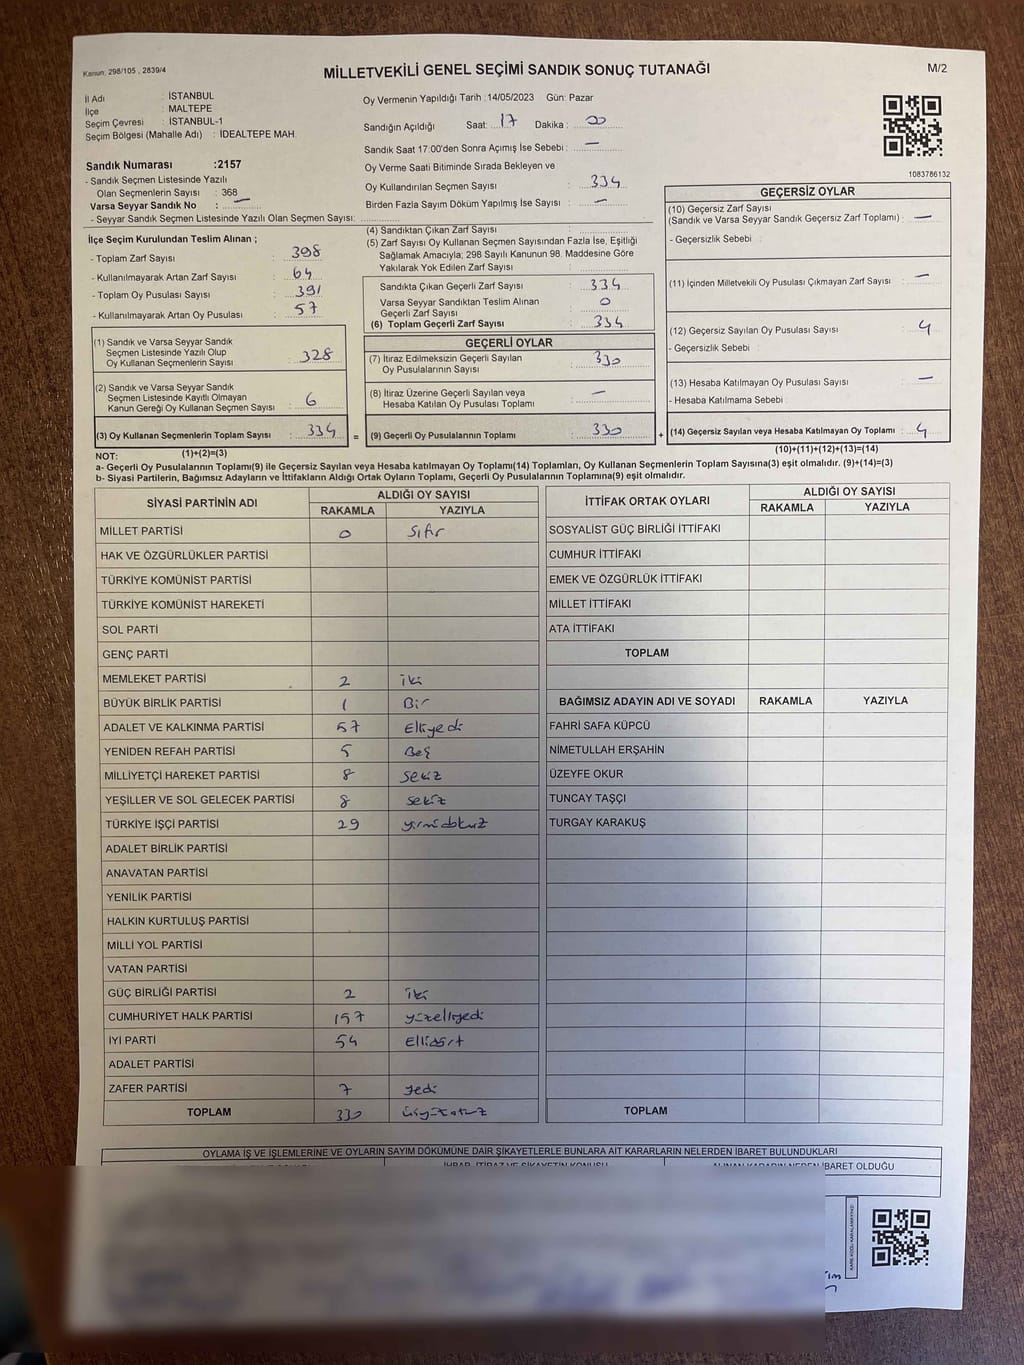 Kanun: 298/105 , 2839/4
MİLLETVEKİLİ GENEL SEÇİMİ SANDIK SONUÇ TUTANAĞI
M/2
İl Adı : İSTANBUL
İlçe : MALTEPE
Seçim Çevresi : İSTANBUL-1
Seçim Bölgesi (Mahalle Adı) : İDEALTEPE MAH.
Sandık Numarası :2157
- Sandık Seçmen Listesinde Yazılı
Olan Seçmenlerin Sayısı : 368
Varsa Seyyar Sandık No : —
- Seyyar Sandık Seçmen Listesinde Yazılı Olan Seçmen Sayısı:
Oy Vermenin Yapıldığı Tarih :14/05/2023 Gün: Pazar
Sandığın Açıldığı Saat: 17 Dakika : 00
Sandık Saat 17:00'den Sonra Açımış İse Sebebi : —
Oy Verme Saati Bitiminde Sırada Bekleyen ve
Oy Kullandırılan Seçmen Sayısı : 334
Birden Fazla Sayım Döküm Yapılmış İse Sayısı : —
1083786132
İlçe Seçim Kurulundan Teslim Alınan ;
- Toplam Zarf Sayısı : 398
- Kullanılmayarak Artan Zarf Sayısı : 64
- Toplam Oy Pusulası Sayısı : 391
- Kullanılmayarak Artan Oy Pusulası : 57
(1) Sandık ve Varsa Seyyar Sandık
Seçmen Listesinde Yazılı Olup
Oy Kullanan Seçmenlerin Sayısı : 328
(2) Sandık ve Varsa Seyyar Sandık
Seçmen Listesinde Kayıtlı Olmayan
Kanun Gereği Oy Kullanan Seçmen Sayısı : 6
(3) Oy Kullanan Seçmenlerin Toplam Sayısı : 334 =
(1)+(2)=(3)
(4) Sandıktan Çıkan Zarf Sayısı :
(5) Zarf Sayısı Oy Kullanan Seçmen Sayısından Fazla İse, Eşitliği
Sağlamak Amacıyla; 298 Sayılı Kanunun 98. Maddesine Göre
Yakılarak Yok Edilen Zarf Sayısı :
Sandıkta Çıkan Geçerli Zarf Sayısı : 334
Varsa Seyyar Sandıktan Teslim Alınan
Geçerli Zarf Sayısı : 0
(6) Toplam Geçerli Zarf Sayısı : 334
GEÇERLİ OYLAR
(7) İtiraz Edilmeksizin Geçerli Sayılan
Oy Pusulalarının Sayısı : 330
(8) İtiraz Üzerine Geçerli Sayılan veya
Hesaba Katılan Oy Pusulası Toplamı : —
(9) Geçerli Oy Pusulalarının Toplamı : 330 +
GEÇERSİZ OYLAR
(10) Geçersiz Zarf Sayısı
(Sandık ve Varsa Seyyar Sandık Geçersiz Zarf Toplamı) : —
- Geçersizlik Sebebi :
(11) İçinden Milletvekili Oy Pusulası Çıkmayan Zarf Sayısı : —
(12) Geçersiz Sayılan Oy Pusulası Sayısı : 4
- Geçersizlik Sebebi :
(13) Hesaba Katılmayan Oy Pusulası Sayısı : —
- Hesaba Katılmama Sebebi :
(14) Geçersiz Sayılan veya Hesaba Katılmayan Oy Toplamı : 4
(10)+(11)+(12)+(13)=(14)
NOT:
a- Geçerli Oy Pusulalarının Toplamı(9) ile Geçersiz Sayılan veya Hesaba katılmayan Oy Toplamı(14) Toplamları, Oy Kullanan Seçmenlerin Toplam Sayısına(3) eşit olmalıdır. (9)+(14)=(3)
b- Siyasi Partilerin, Bağımsız Adayların ve İttifakların Aldığı Ortak Oyların Toplamı, Geçerli Oy Pusulalarının Toplamına(9) eşit olmalıdır.
SİYASİ PARTİNİN ADI ALDIĞI OY SAYISI
RAKAMLA YAZIYLA
MİLLET PARTİSİ 0 Sıfır
HAK VE ÖZGÜRLÜKLER PARTİSİ
TÜRKİYE KOMÜNİST PARTİSİ
TÜRKİYE KOMÜNİST HAREKETİ
SOL PARTİ
GENÇ PARTİ
MEMLEKET PARTİSİ 2 iki
BÜYÜK BİRLİK PARTİSİ 1 Bir
ADALET VE KALKINMA PARTİSİ 57 Elliyedi
YENİDEN REFAH PARTİSİ 5 Beş
MİLLİYETÇİ HAREKET PARTİSİ 8 sekiz
YEŞİLLER VE SOL GELECEK PARTİSİ 8 sekiz
TÜRKİYE İŞÇİ PARTİSİ 29 yirmidokuz
ADALET BİRLİK PARTİSİ
ANAVATAN PARTİSİ
YENİLİK PARTİSİ
HALKIN KURTULUŞ PARTİSİ
MİLLİ YOL PARTİSİ
VATAN PARTİSİ
GÜÇ BİRLİĞİ PARTİSİ 2 iki
CUMHURİYET HALK PARTİSİ 157 yüzelliyedi
İYİ PARTİ 54 Ellidört
ADALET PARTİSİ
ZAFER PARTİSİ 7 yedi
TOPLAM 330 üçyüzotuz
İTTİFAK ORTAK OYLARI ALDIĞI OY SAYISI
RAKAMLA YAZIYLA
SOSYALİST GÜÇ BİRLİĞİ İTTİFAKI
CUMHUR İTTİFAKI
EMEK VE ÖZGÜRLÜK İTTİFAKI
MİLLET İTTİFAKI
ATA İTTİFAKI
TOPLAM
BAĞIMSIZ ADAYIN ADI VE SOYADI RAKAMLA YAZIYLA
FAHRİ SAFA KÜPCÜ
NİMETULLAH ERŞAHİN
ÜZEYFE OKUR
TUNCAY TAŞÇI
TURGAY KARAKUŞ
TOPLAM
OYLAMA İŞ VE İŞLEMLERİNE VE OYLARIN SAYIM DÖKÜMÜNE DAİR ŞİKAYETLERLE BUNLARA AİT KARARLARIN NELERDEN İBARET BULUNDUKLARI
İHBAR, İTİRAZ VE ŞİKAYETİN KONUSU
ALINAN KARARIN NEDEN İBARET OLDUĞU